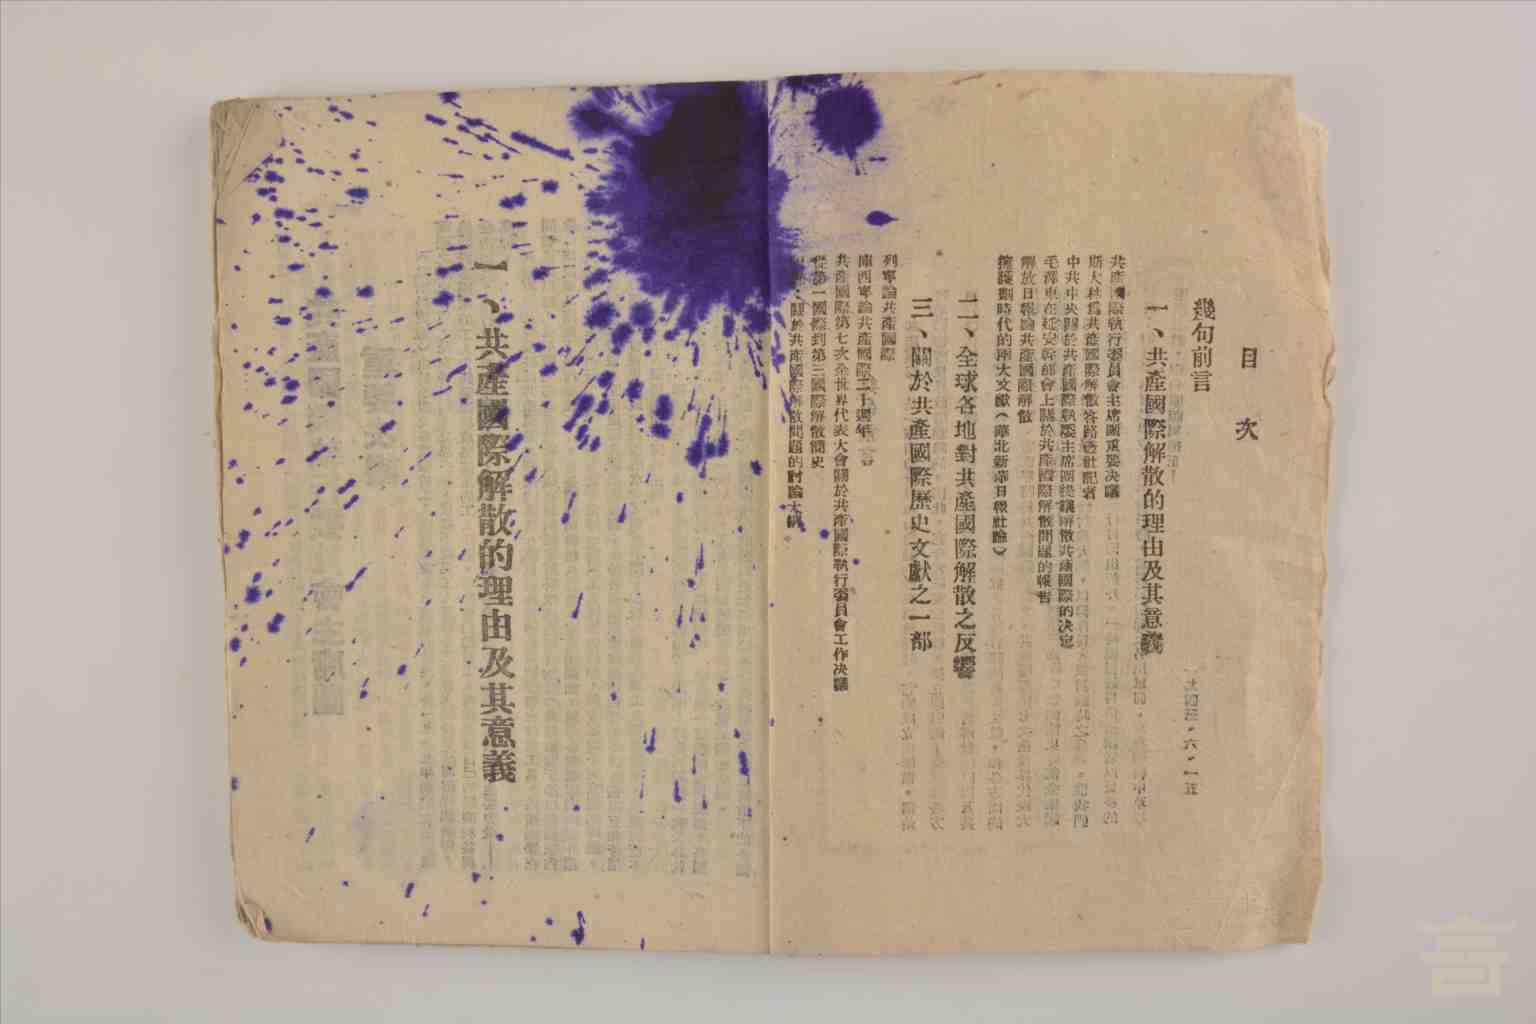 目次
幾句前言
一九四三・六・一五
一、共產國際解散的理由及其意義
共產國際執行委員會主席團重要決議
斯大林爲共產國際解散答路透社記者
中共中央關於共產國際執委主席團提議解散共產國際的決定
毛澤東在延安幹部會上關於共產國際解散問題的報告
解放日報論共產國際解散
劃時代的兩大文獻（華北新華日報社論）
二、全球各地對共產國際解散之反響
三、關於共產國際歷史文獻之一部
列寧論共產國際
庫西寧論共產國際二十週年
共產國際第七次全世界代表大會關於共產國際執行委員會工作決議
從第一國際到第三國際解散簡史
關於共產國際解散問題的討論大綱
一、共產國際解散的理由及其意義